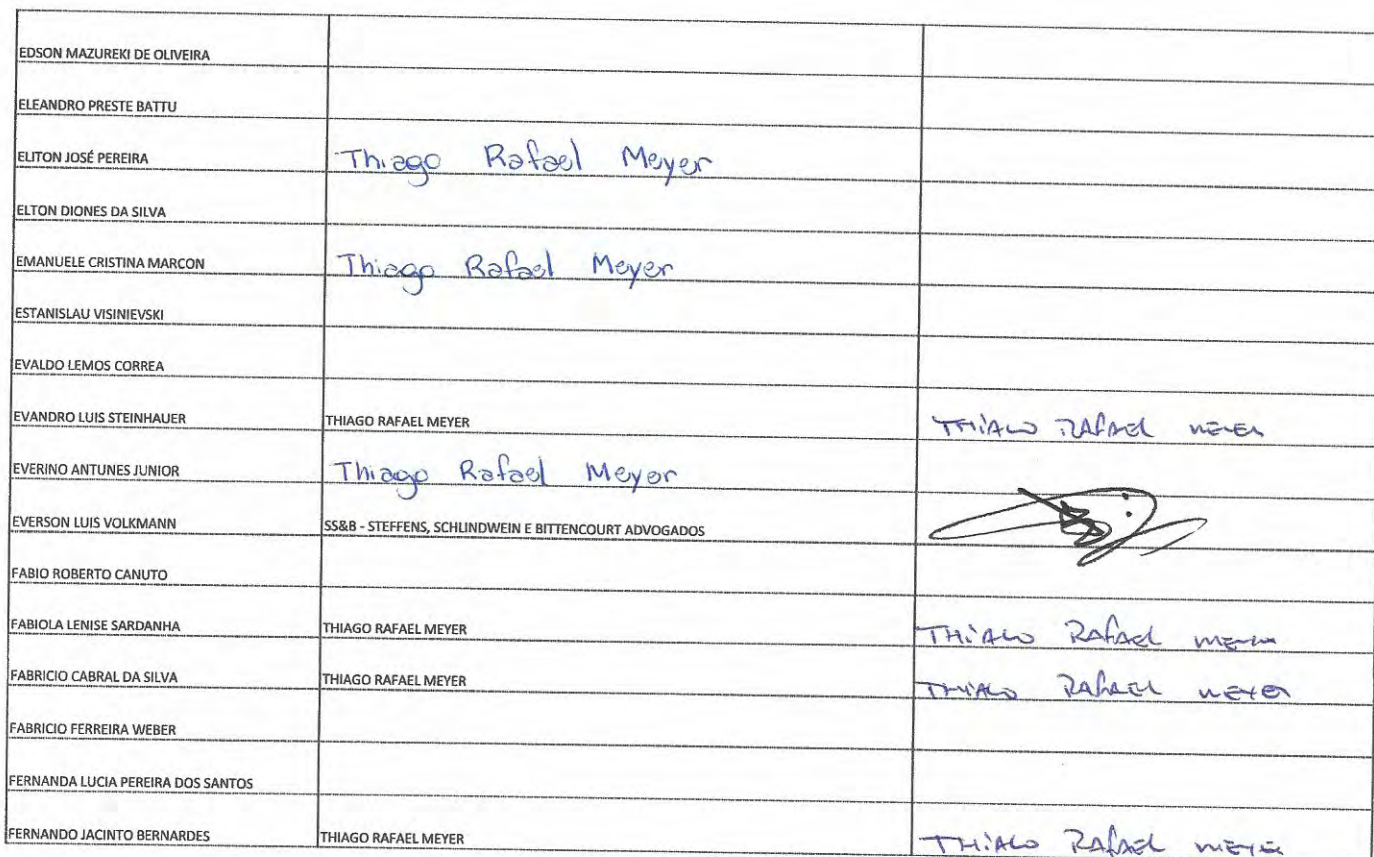 EDSON MAZUREKI DE OLIVEIRA
ELEANDRO PRESTE BATTU
ELITON JOSÉ PEREIRA Thiago Rafael Meyer
ELTON DIONES DA SILVA
EMANUELE CRISTINA MARCON Thiago Rafael Meyer
ESTANISLAU VISINIEVSKI
EVALDO LEMOS CORREA
EVANDRO LUIS STEINHAUER THIAGO RAFAEL MEYER THIAGO RAFAEL MEYER
EVERINO ANTUNES JUNIOR Thiago Rafael Meyer
EVERSON LUIS VOLKMANN SS&B - STEFFENS, SCHLINDWEIN E BITTENCOURT ADVOGADOS
FABIO ROBERTO CANUTO
FABIOLA LENISE SARDANHA THIAGO RAFAEL MEYER THIAGO RAFAEL MEYER
FABRICIO CABRAL DA SILVA THIAGO RAFAEL MEYER THIAGO RAFAEL MEYER
FABRICIO FERREIRA WEBER
FERNANDA LUCIA PEREIRA DOS SANTOS
FERNANDO JACINTO BERNARDES THIAGO RAFAEL MEYER THIAGO RAFAEL MEYER